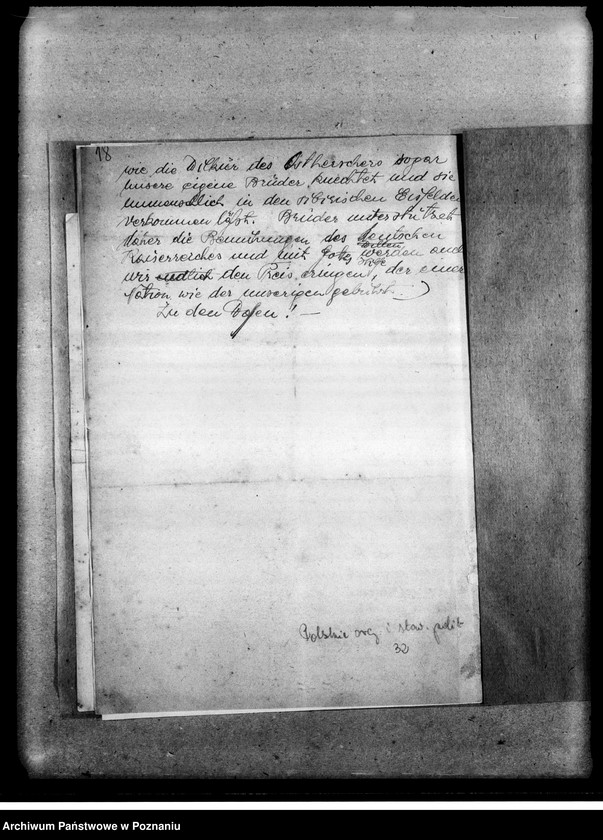 18
wie die Wilkür des Ostherschers sogar
unsere eigene Brüder knechtet und sie
unmenschlich in den sibirischen Eisfelder
verkommen läßt. Brüder unterstützet
daher die Bemühungen des deutschen
Kaiserreiches und mit Gottes willen werden auch
wir endlich den Preis eringen, der einer
Nation wie der unserigen gebührt. )
Zu den Wafen! —
Polskie org i stow. polit
32
Archiwum Państwowe w Poznaniu